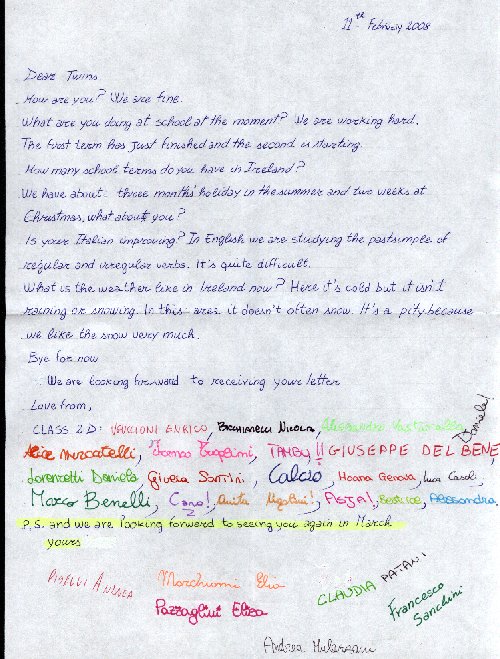 11th February 2008
Dear Twins
How are you? We are fine.
What are you doing at school at the moment? We are working hard.
The first term has just finished and the second is starting.
How many school terms do you have in Ireland?
We have about three months' holiday in the summer and two weeks at
Christmas, what about you?
Is your Italian improving? In English we are studying the past simple of
regular and irregular verbs. It's quite difficult.
What is the weather like in Ireland now? Here it's cold but it isn't
raining or snowing. In this area it doesn't often snow. It's a pity because
we like the snow very much.
Bye for now
We are looking forward to receiving your letter
Love from,
CLASS 2D: VENCIONI ENRICO, Nicola, Alessandro Daniele!
Alice Mercatelli, Thomas TAMBY!! GIUSEPPE DEL BENE
Lorenzetti Daniela Giulia Santini, Calcio, Moana Genova, Luca Casoli,
Marco Benelli, Anita Ugolini! ASJA!, Beatrice, Alessandra.
P.S. and we are looking forward to seeing you again in March
yours
PISELLI ANDREA Marchionni Elia CLAUDIA PATANI
Pazzaglini Elisa Francesco Sanchini
Andrea